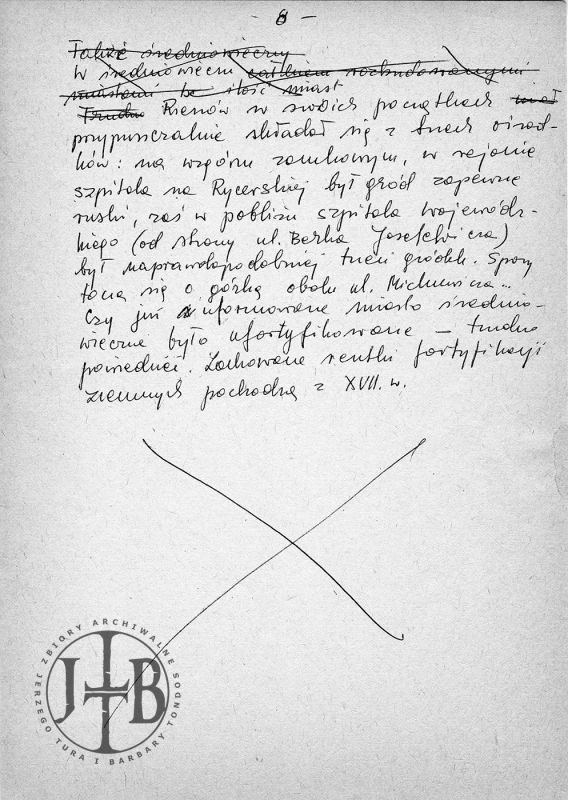 - 8 -
Także średniowieczny
W średniowieczu całkiem rozbudowanymi
miastami be ilość miast
Trudno Rzeszów w swoich początkach miał
przypuszczalnie składał się z trzech ośrod-
ków: na wzgórzu zamkowym, w rejonie
szpitala na Rycerskiej był gród zapewne
ruski, zaś w pobliżu szpitala Wojewódz-
kiego (od strony ul. Berka Joselewicza)
był najprawdopodobniej trzeci gródek. Spory
toczą się o górkę obok ul. Mickiewicza...
Czy już uformowane miasto średnio-
wieczne było ufortyfikowane – trudno
powiedzieć. Zachowane resztki fortyfikacji
ziemnych pochodzą z XVII. w.
ZBIORY ARCHIWALNE
JERZEGO TURA I BARBARY TONDOS
JTB